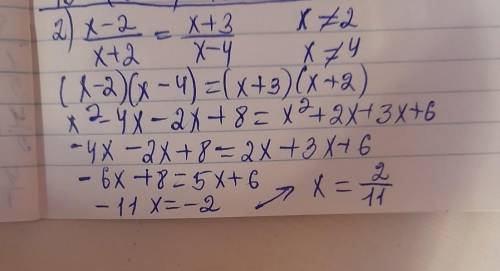 2) \frac{x-2}{x+2} = \frac{x+3}{x-4} x ≠ 2
x ≠ 4
(x-2)(x-4)=(x+3)(x+2)
x²-4x-2x+8=x²+2x+3x+6
-4x-2x+8=2x+3x+6
-6x+8=5x+6
-11x=-2 → x = \frac{2}{11}